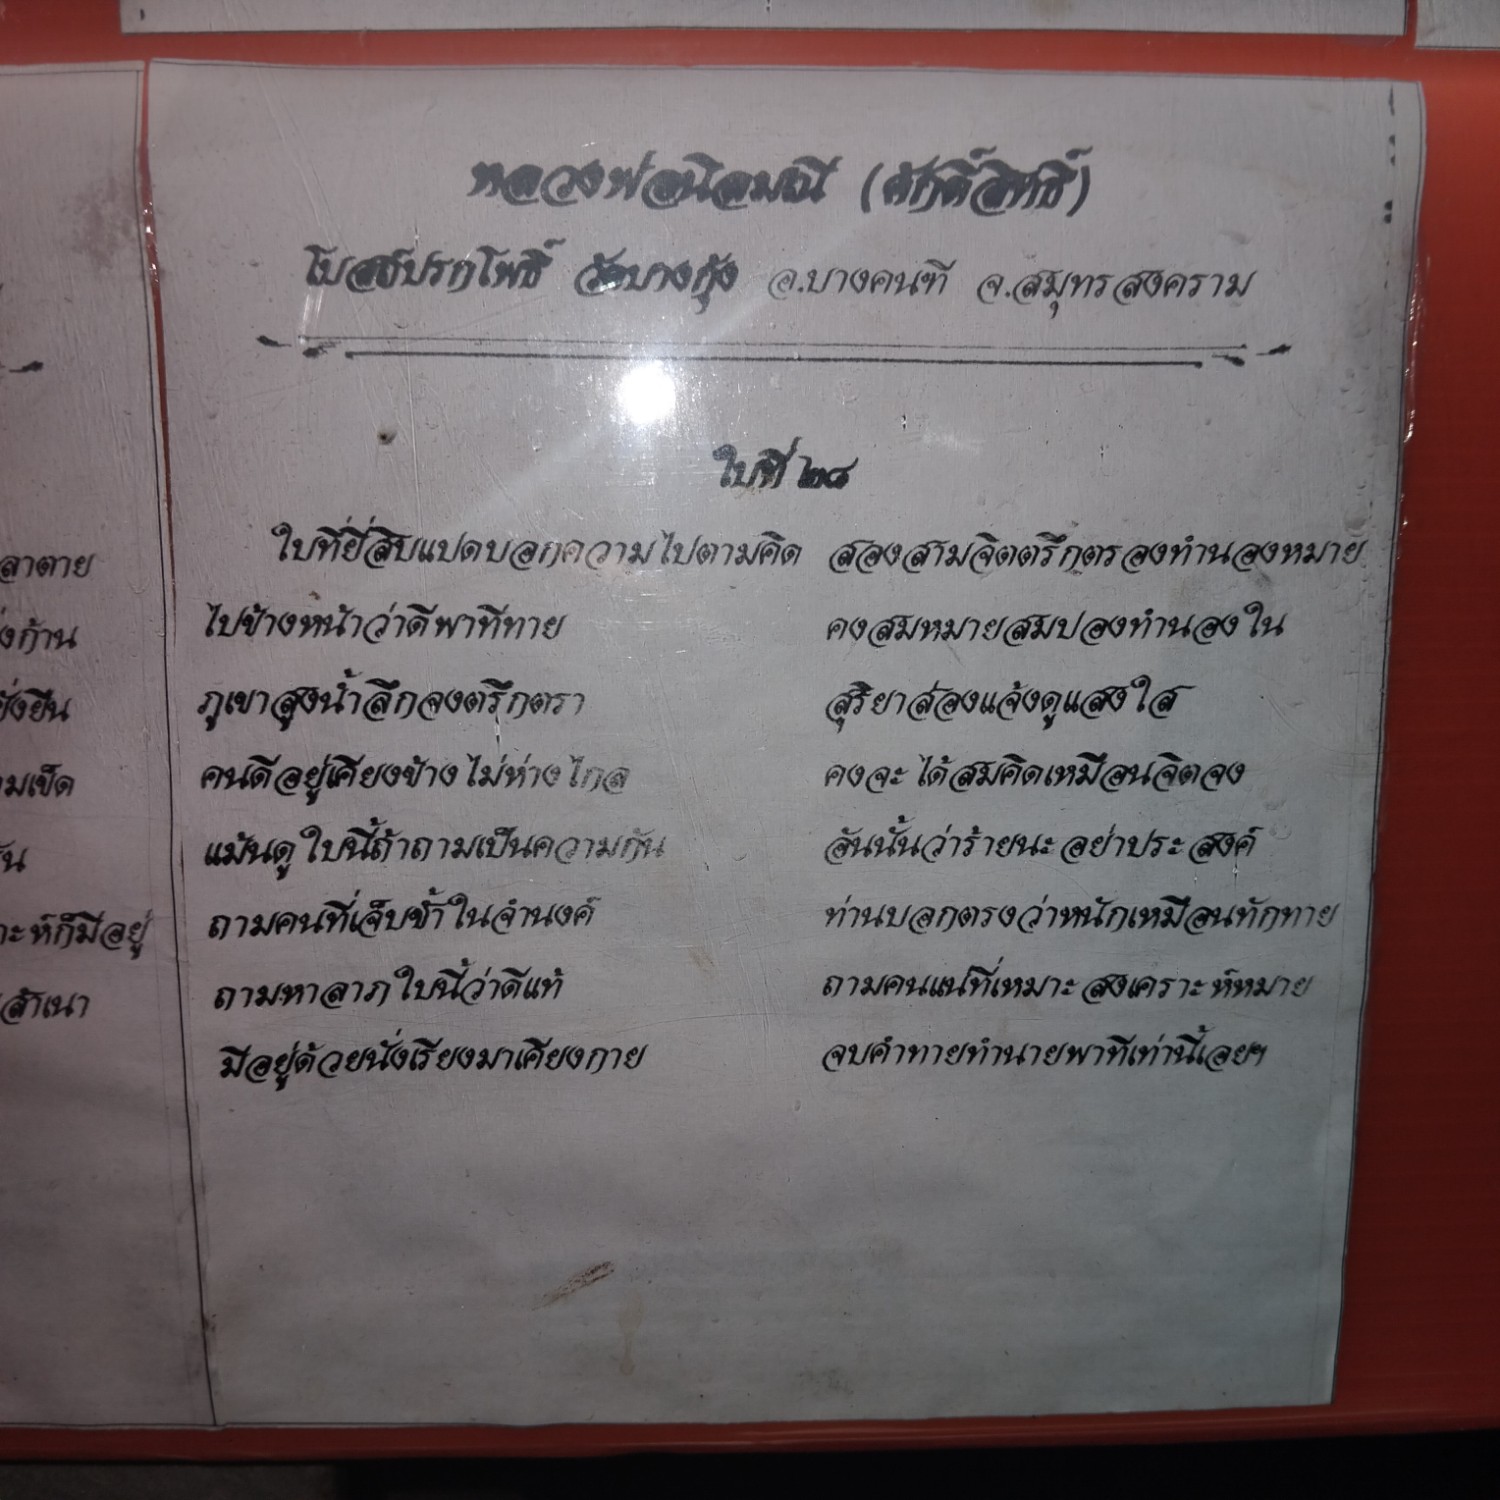 หลวงพ่อนิลมณี (ศักดิ์สิทธิ์)
โบสถ์ปรกโพธิ์ วัดบางกุ้ง อ.บางคนฑี จ.สมุทรสงคราม
ใบที่ ๒๘
ใบที่ยี่สิบแปดบอกความไปตามคิด สองสามจิตตรึกตรองทำนองหมาย
ไปข้างหน้าว่าดีพาทีทาย คงสมหมายสมปองทำนองใน
ภูเขาสูงน้ำลึกจงตรึกตรา สุริยาส่องแจ้งดูแสงใส
คนดีอยู่เคียงข้างไม่ห่างไกล คงจะได้สมคิดเหมือนจิตจง
แม้นดูใบนี้ถ้าถามเป็นความกัน อันนั้นว่าร้ายนะอย่าประสงค์
ถามคนที่เจ็บช้ำในจำนงค์ ท่านบอกตรงว่าหนักเหมือนทักทาย
ถามหาลาภใบนี้ว่าดีแท้ ถามคนแน่ที่เหมาะสงเคราะห์หมาย
มีอยู่ด้วยนั่งเรียงมาเคียงกาย จบคำทายทำนายพาทีเท่านี้เอยฯ
ลาตาย
งก้าน
ยั่งยืน
มเข็ด
ะห์ก็มีอยู่
สำเนา